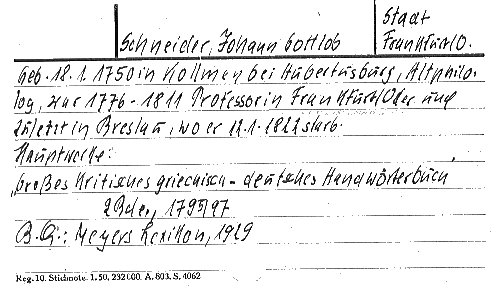 Schneider, Johann Gottlob
Stadt
Frankfurt/O.
Geb. 18.1.1750 in Kollmen bei Hubertusburg, Altphilo-
log, war 1776-1811 Professor in Frankfurt/Oder und
zuletzt in Breslau, wo er 12.1.1822 starb.
Hauptwerke:
"Großes Kritisches griechisch-deutsches Handwörterbuch"
2 Bde., 1795/97
B.Q.: Meyers Lexikon, 1929
Reg. 10. Stichnote. 1. 50, 232 000. A. 803. S. 4062